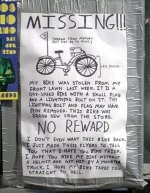 MISSING!!!
MY BIKE WAS STOLEN FROM MY
FRONT LAWN LAST WEEK. IT IS A
ONE-SPEED BIKE WITH A SKULL FLAG
AND A LIGHTNING BOLT ON IT. THE
LIGHTNING BOLT AND FLAG MAY HAVE
BEEN REMOVED. THIS BIKE WAS
BRAND NEW FROM THE STORE.
NO REWARD
I DON'T EVEN WANT THIS BIKE BACK.
I JUST MADE THESE FLYERS TO TELL
YOU THAT I HATE YOU BIKE THIEF.
I HOPE YOU RIDE MY BIKE WITHOUT
A HELMET AND GET HIT BY A MONSTER
TRUCK. I HOPE MY BIKE TAKES YOU
STRAIGHT TO HELL.